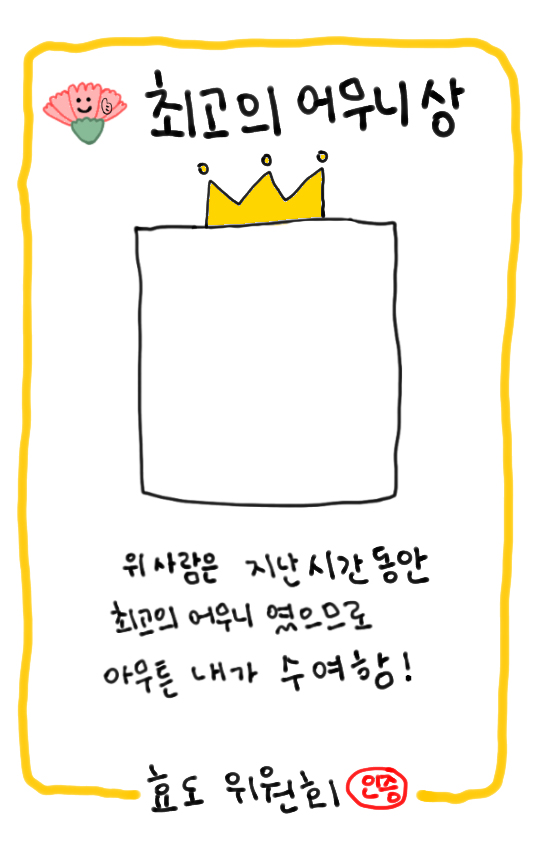 최고의 어무니상
위 사람은 지난 시간 동안
최고의 어무니 였으므로
아무튼 내가 수여함!
효도 위원회 인증